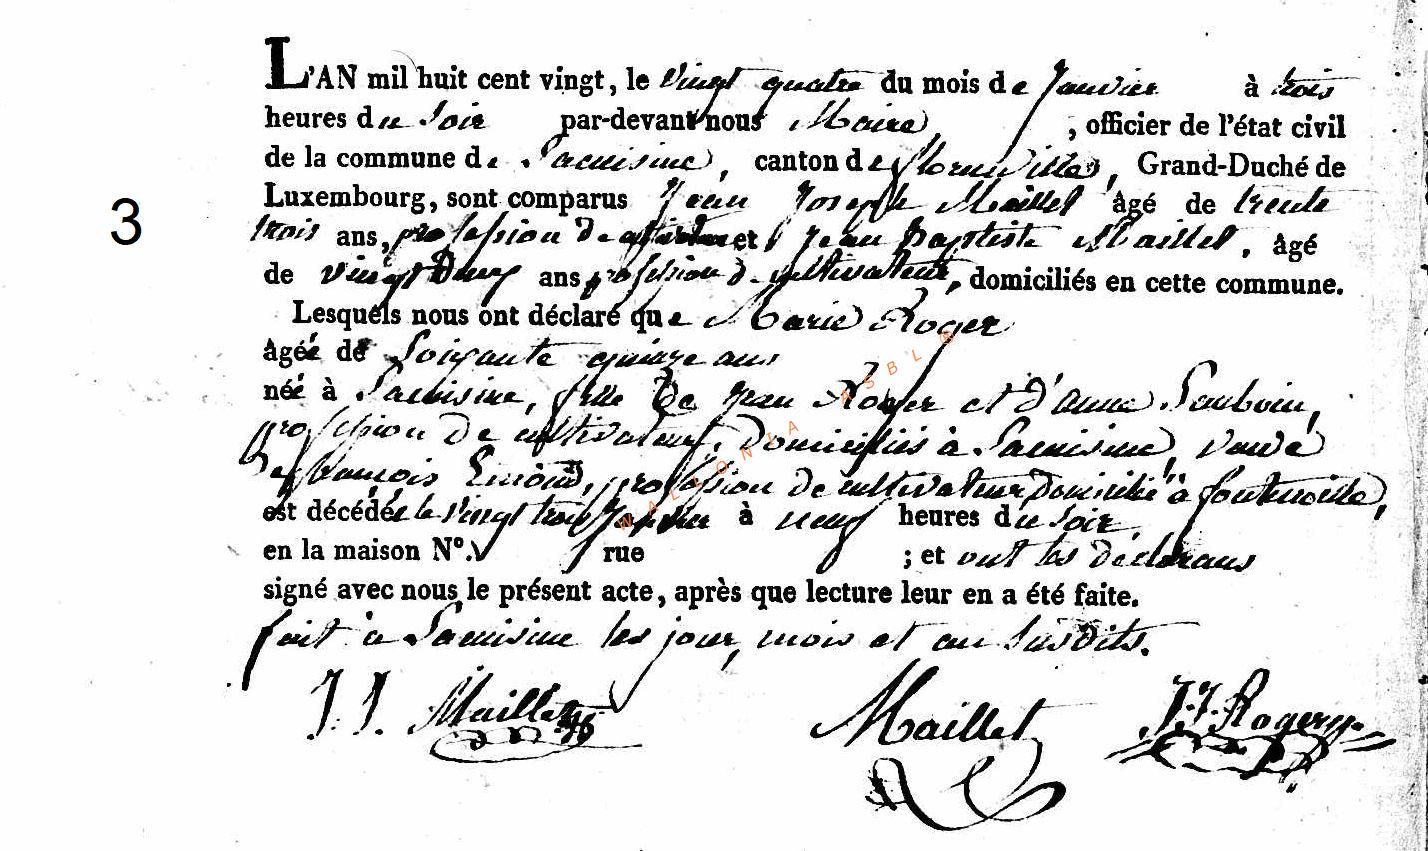 L'AN mil huit cent vingt, le vingt quatre du mois de Janvier à trois
heures du Soir par-devant nous Maire, officier de l'état civil
de la commune de Lacuisine, canton de florenville, Grand-Duché de
Luxembourg, sont comparus Jean Joseph Maillet âgé de trente
3
trois ans, profession de et Jean Baptiste Maillet, âgé
de vingt ans profession de cultivateur, domiciliés en cette commune.
Lesquels nous ont déclaré que Marie Roger
âgée de Soixante quinze ans
née à Lacuisine, fille de Jean Roger et d'anne
profession de cultivateurs, domiciliés à Lacuisine, veuve
De françois profession de cultivateur domicilié à fontenoille,
est décédée le vingt trois Janvier à neuf heures du Soir
en la maison N°. rue ; et ont les déclarans
signé avec nous le présent acte, après que lecture leur en a été faite.
fait à Lacuisine les jour, mois et an susdits.
J. J. Maillet Maillet J:J. Rogery
WALLONIA ASBL ®